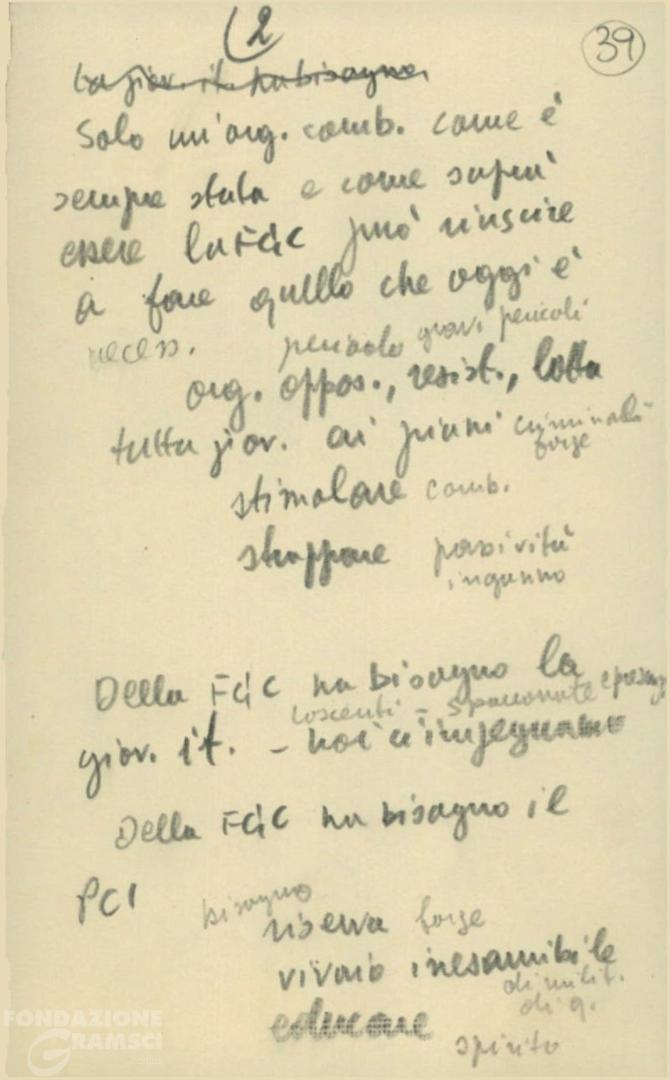 2
39
La giov. it. ha bisogno
Solo un'org. comb. come è
sempre stata e come saprà
essere la FGIC può riuscire
a fare quello che oggi è
necess. pericolo gravi pericoli
org. oppos., resist., lotta
tutta giov. ai piani criminali
forze
stimolare comb.
strappare passività
inganno
Della FGIC ha bisogno la
coscienti - spassionate e
giov. it. - noi c'impegnamo
Della FGIC ha bisogno il
PCI bisogno
riserva forze
vivaio inesauribile
di milit.
di q.
educare
spirito
FONDAZIONE
GRAMSCI